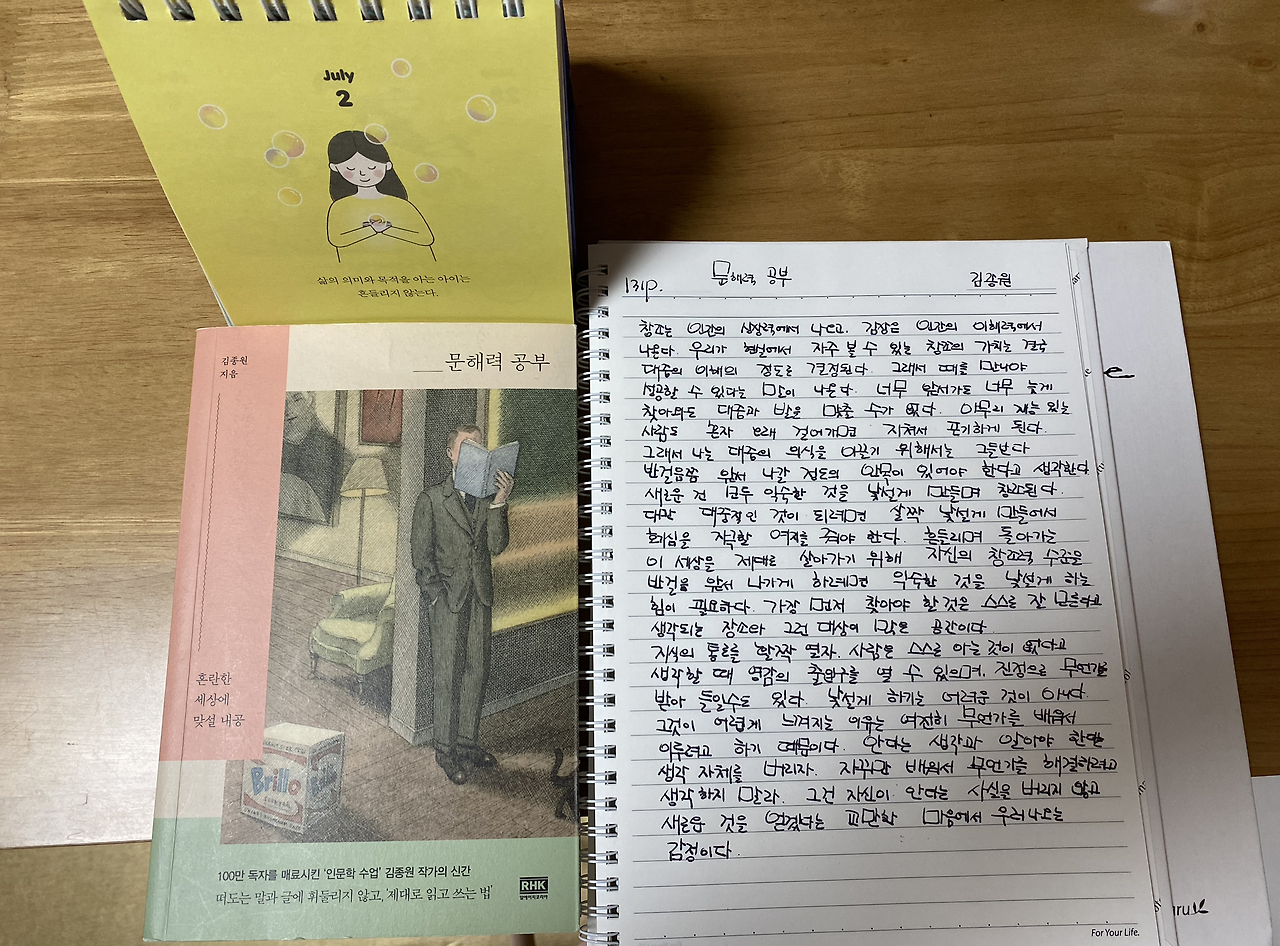 July
2
삶의 의미와 목적을 아는 아이는
흔들리지 않는다.
김종원
지음
문해력 공부
혼란한
세상에
맞설 내공
Brillo
100만 독자를 매료시킨 '인문학 수업' 김종원 작가의 신간
떠도는 말과 글에 휘둘리지 않고, '제대로 읽고 쓰는 법'
RHK
알에이치코리아
131p. 문해력 공부 김종원
창조는 인간의 상상력에서 나오고, 감정은 인간의 이해력에서
나온다. 우리가 현실에서 자주 볼 수 있는 창조의 가치는 결국
대중의 이해의 정도로 결정된다. 그래서 때를 만나야
성공할 수 있다는 말이 나온다. 너무 앞서가도 너무 늦게
찾아와도 대중과 발을 맞출 수가 없다. 아무리 재능 있는
사람도 혼자 오래 걸어가면 지쳐서 포기하게 된다.
그래서 나는 대중의 의식을 이끌기 위해서는 그들보다
반걸음쯤 앞서 나갈 정도의 안목이 있어야 한다고 생각한다.
새로운 건 모두 익숙한 것을 낯설게 만들며 창조된다.
다만 대중적인 것이 되려면 살짝 낯설게 만들어서
호기심을 자극할 여지를 줘야 한다. 흔들리며 돌아가는
이 세상을 제대로 살아가기 위해 자신의 창조력 수준을
반걸음 앞서 나가게 하려면 익숙한 것을 낯설게 하는
힘이 필요하다. 가장 먼저 찾아야 할 것은 스스로 잘 모른다고
생각되는 장소와 그런 대상이 많은 공간이다.
지식의 통로를 활짝 열자. 사람은 스스로 아는 것이 없다고
생각할 때 영감의 출입구를 열 수 있으며, 진정으로 무언가를
받아 들일수도 있다. 낯설게 하기는 어려운 것이 아니다.
그것이 어렵게 느껴지는 이유는 여전히 무언가를 배워서
이루려고 하기 때문이다. 안다는 생각과 알아야 한다는
생각 자체를 버리자. 자꾸만 배워서 무언가를 해결하려고
생각하지 말라. 그건 자신이 안다는 사실을 버리지 않고
새로운 것을 얻겠다는 교만한 마음에서 우러나오는
감정이다.
For Your Life.